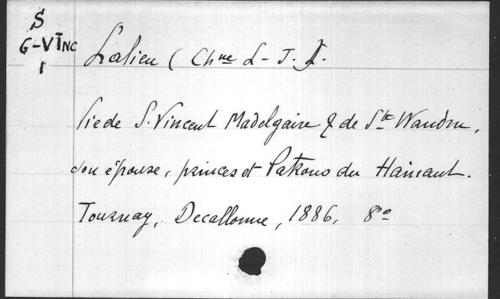 S
G-VINC
1
Lalieu (Chne L-J.)
Vie de S. Vincent Madelgaire & de Ste Waudru,
son épouse, princes et Patrons du Hainaut.
Tournay, Decallonne, 1886, 8°